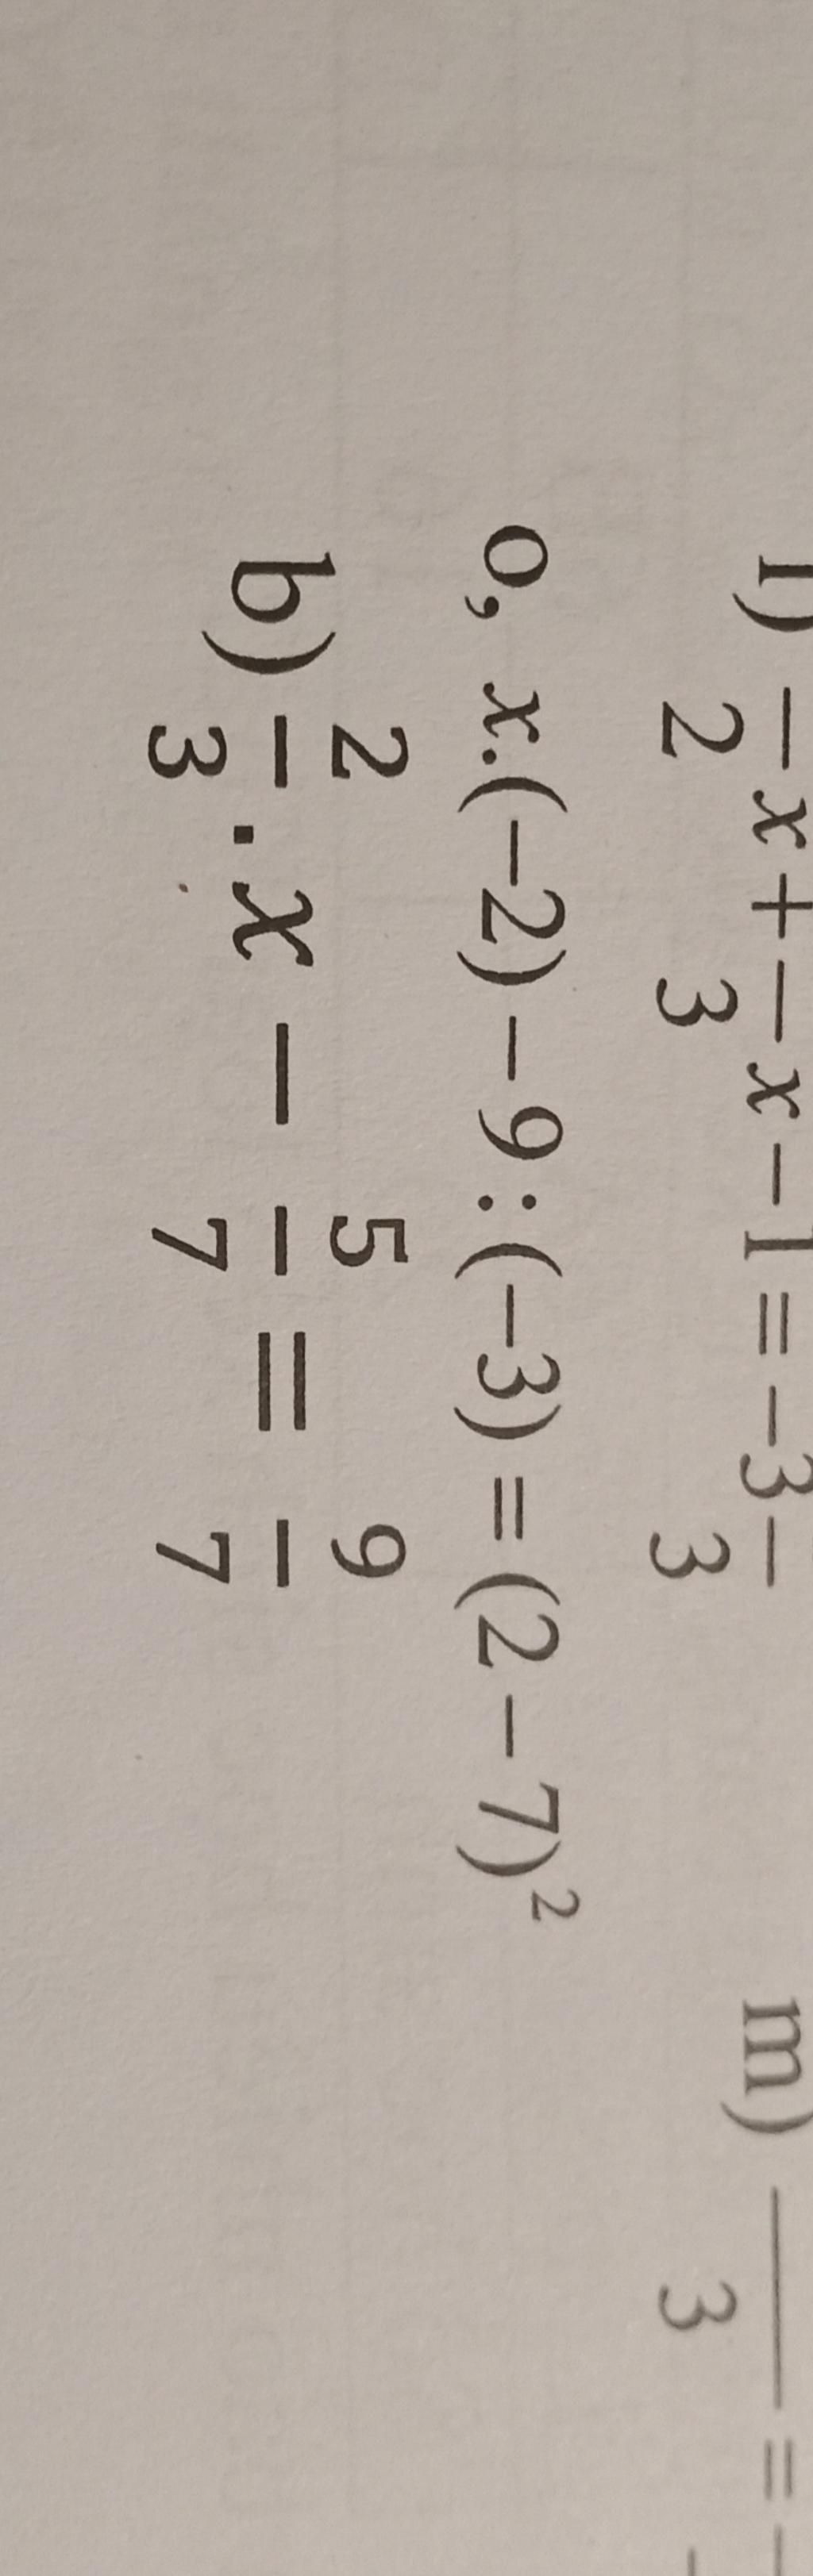 l) —/2 x + —/3 x − 1 = −3 —/3
m) —/3 = −
o, x.(−2) − 9 : (−3) = (2 − 7)²
b) 2/3 . x − 5/7 = 9/7